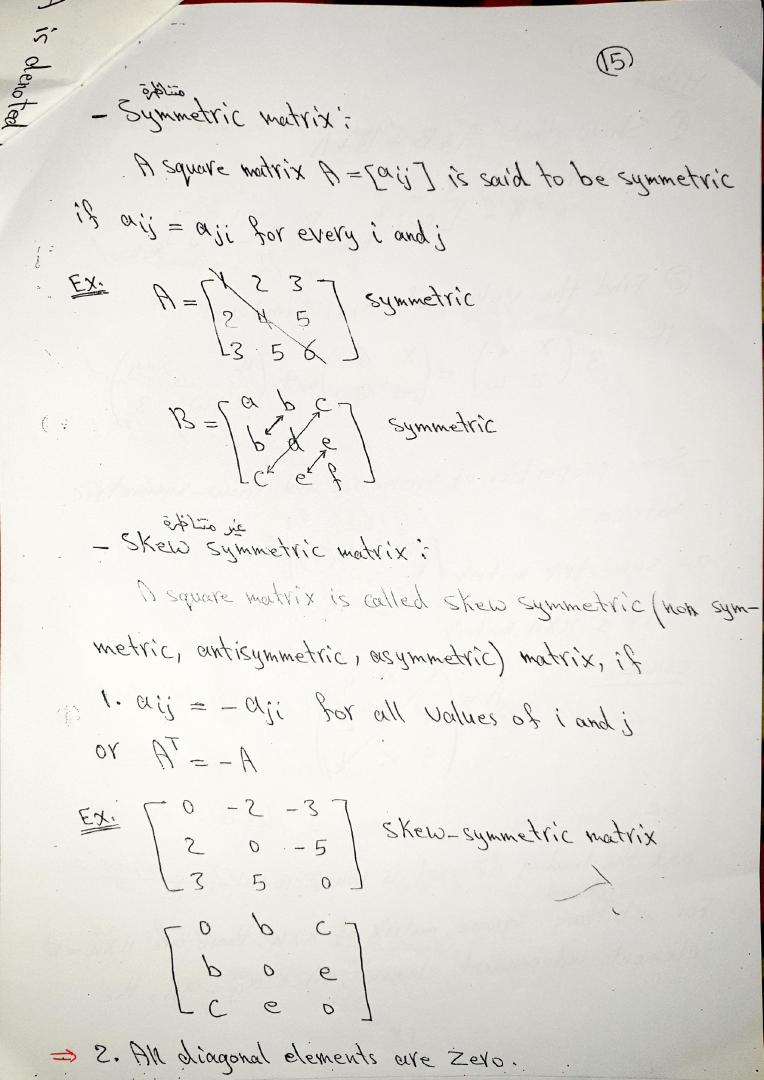 is denoted
15
متناظرة
- Symmetric matrix :-
A square matrix A = [aij] is said to be symmetric
if aij = aji for every i and j
Ex. A = [1 2 3 symmetric
2 4 5
3 5 6]
B = [a b c symmetric
b d e
c e f]
غير متناظرة
- Skew symmetric matrix :-
A square matrix is called skew symmetric (non sym-
metric, antisymmetric, asymmetric) matrix, if
1. aij = - aji for all values of i and j
or A^T = - A
Ex. [0 -2 -3 skew-symmetric matrix
2 0 -5
3 5 0]
[0 b c
b 0 e
c e 0]
⇒ 2. All diagonal elements are zero.